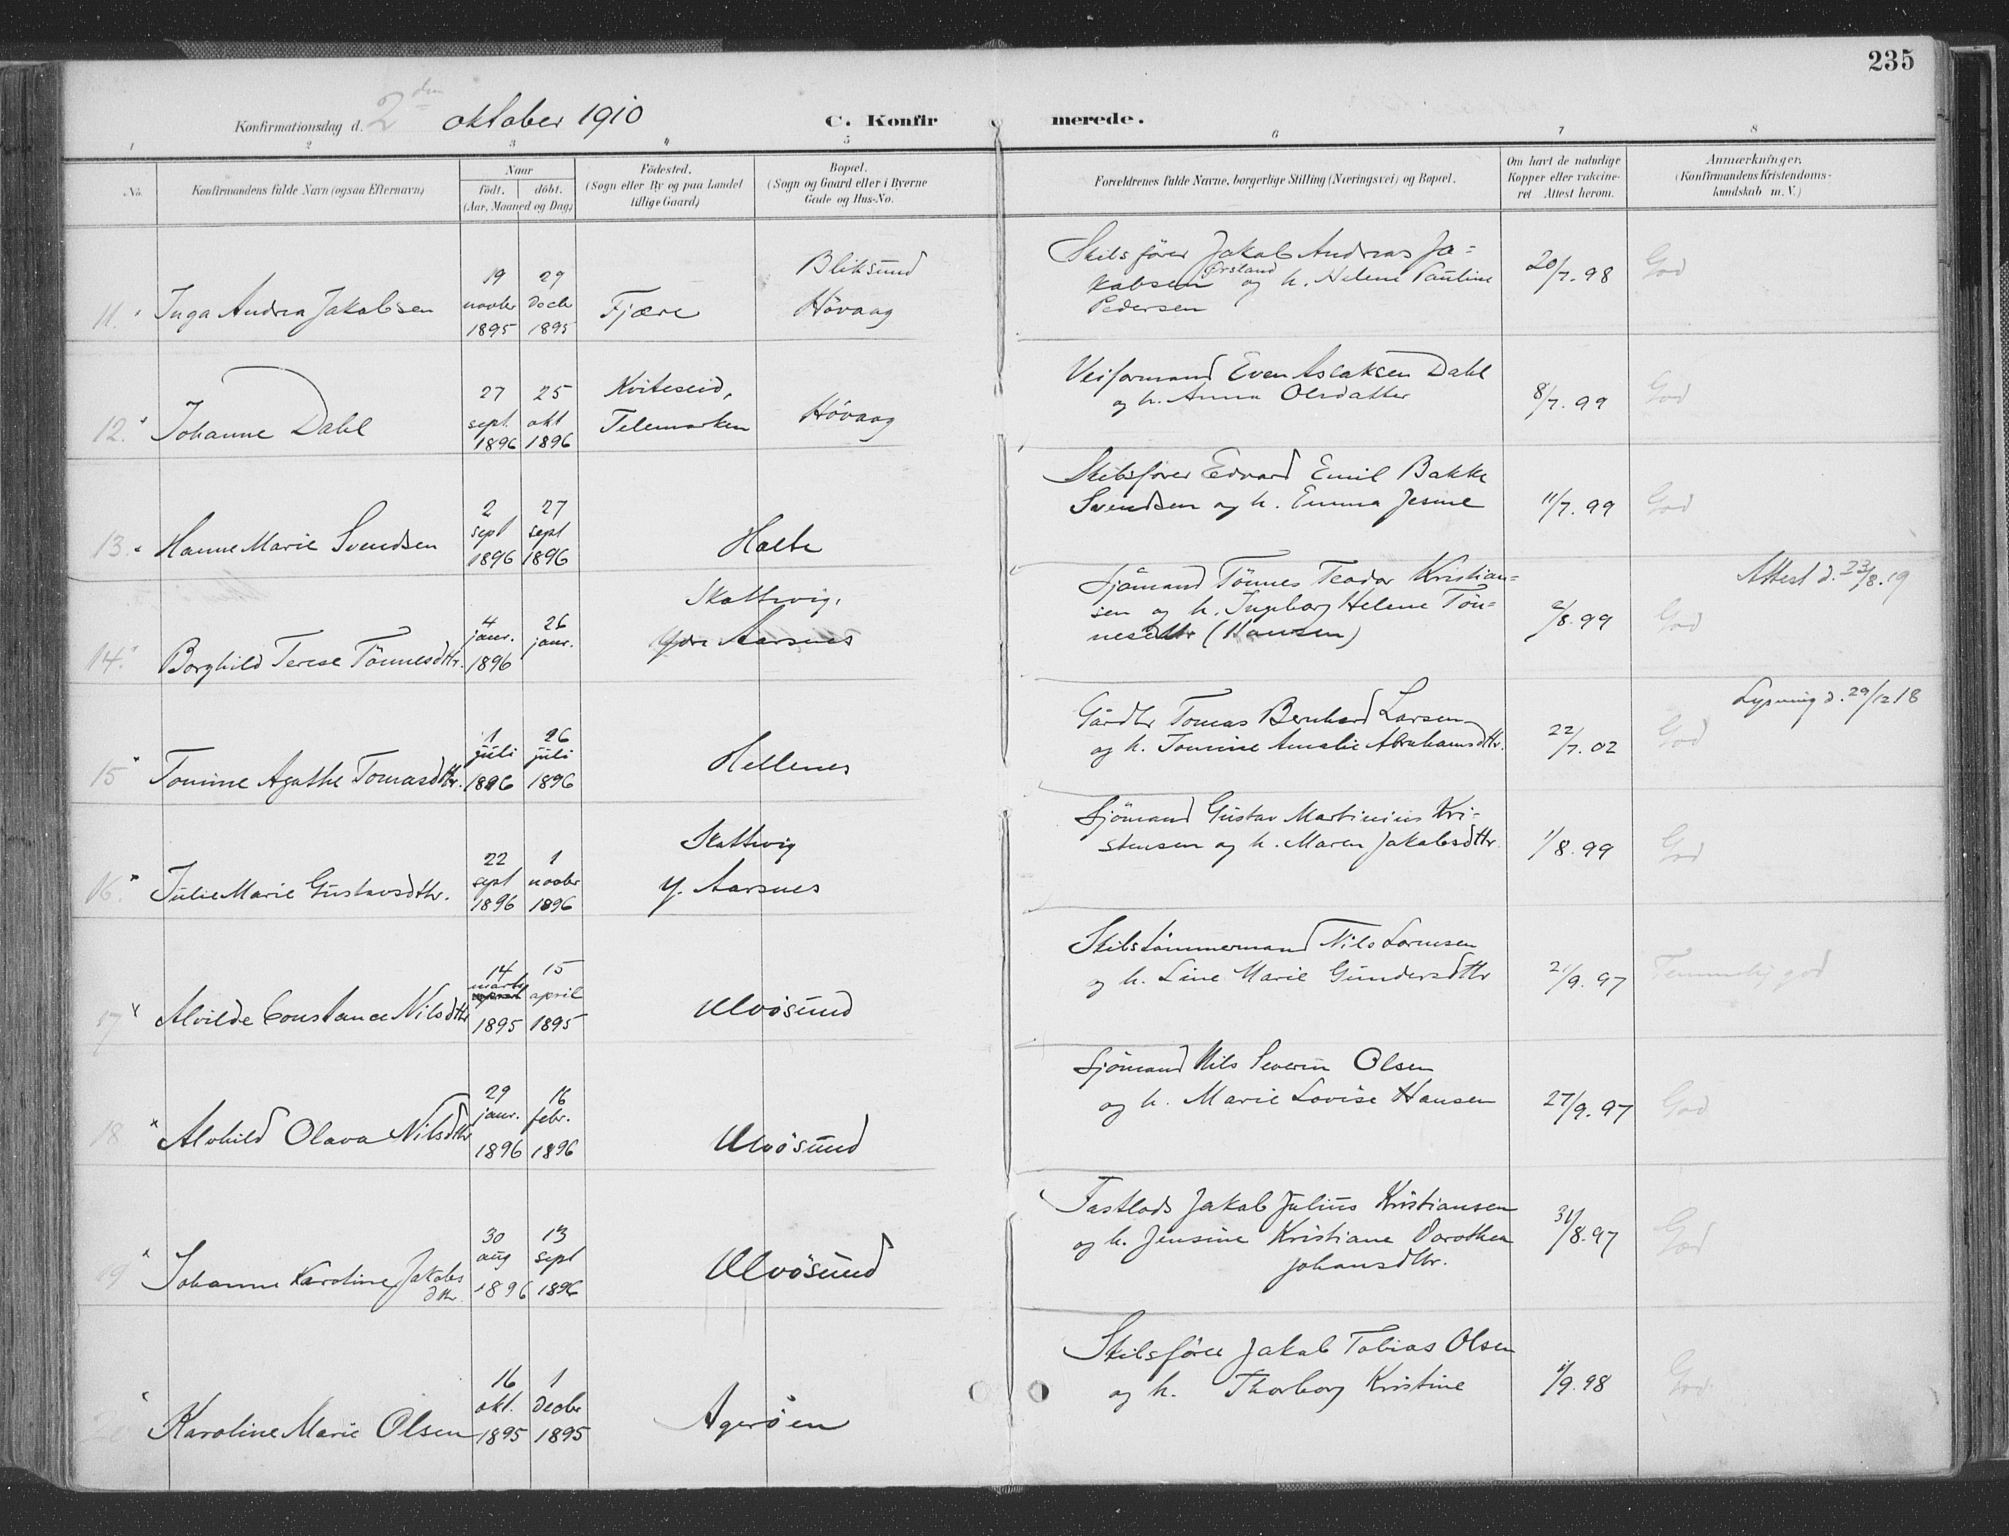 235
Konfirmationsdag d. 2den oktober 1910 C. Konfirmerede.
1 2 3 4 5 6 7 8
No. Konfirmandens fulde Navn (ogsaa Efternavn)
Naar
födt. döbt.
(Aar, Maaned og Dag)
Födested.
(Sogn eller By og paa Landet
tillige Gaard)
Bopæl.
(Sogn og Gaard eller i Byerne
Gade og Hus-No.
Forældrenes fulde Navne, borgerlige Stilling (Næringsvei) og Bopæl.
Om havt de naturlige
Kopper eller vakcine-
ret Attest herom.
Anmærkninger.
(Konfirmandens Kristendoms-
kundskab m. V.)
11. Inga Andrea Jakobsen
19 novbr 1895
29 decbr 1895
Fjære
Bliksund
Hövaag
Skibsförer Jakob Andreas Ja=
kobsen Örsland og h. Helene Pauline
Pedersen
20/7. 98
God
12. Johanne Dahl
27 sept. 1896
25 okt 1896
Kviteseid,
Telemarken
Hövaag
Veiformand Even Aslaksen Dahl
og h. Anna Olsdatter
8/7. 99
God
13. Hanne Marie Svendsen
2 sept 1896
27 sept 1896
Holte
Skibsförer Edvard Emil Bakke
Svendsen og h. Emma Jesine
11/7. 99
God
14. Borghild Terese Tönnesdtr.
4 janr. 1896
26 janr.
Skottevig,
Ydre Aarsnes
Sjömand Tönnes Teodor Kristian=
sen og h. Ingeborg Helene Tön=
nesdtr (Hansen)
2/8. 99
God
Attest d. 23/8. 19
15 Tomine Agathe Tomasdtr.
1 juli 1896
26 juli 1896
Hellenes
Gårdbr Tomas Bernhard Larsen
og h. Tomine Amalie Abrahamsdtr.
22/7. 02
God
Lysning d. 29/12 18
16. Julie Marie Gustavsdtr.
22 sept 1896
1 novbr 1896
Skottevig
y. Aarsnes
Sjömand Gustav Martinius Kri-
stensen og h. Maren Jakobsdtr.
1/8. 99
God
17 Alvilde Constance Nilsdtr
14 marts 1895
15 april 1895
Ulvösund
Skibstömmermand Nils Lornsen
og h. Line Marie Gundersdtr
21/9. 97
Temmelig god
18 Alvhild Olava Nilsdtr
29 janr. 1896
16 febr. 1896
Ulvösund
Sjömand Nils Severin Olsen
og h. Marie Lovise Hansen
27/9. 97
God
19 Johanne Karoline Jakobs
dtr.
30 aug 1896
13 sept 1896
Ulvösund
Fastlods Jakob Julius Kristiansen
og h. Jensine Kristiane Dorothea
Johansdtr.
31/8. 97
God
20 Karoline Marie Olsen
16 okt. 1895
1 decbr 1895
Ageröen
Skibsförer Jakob Tobias Olsen
og h. Thorborg Kristine
9. 98
God